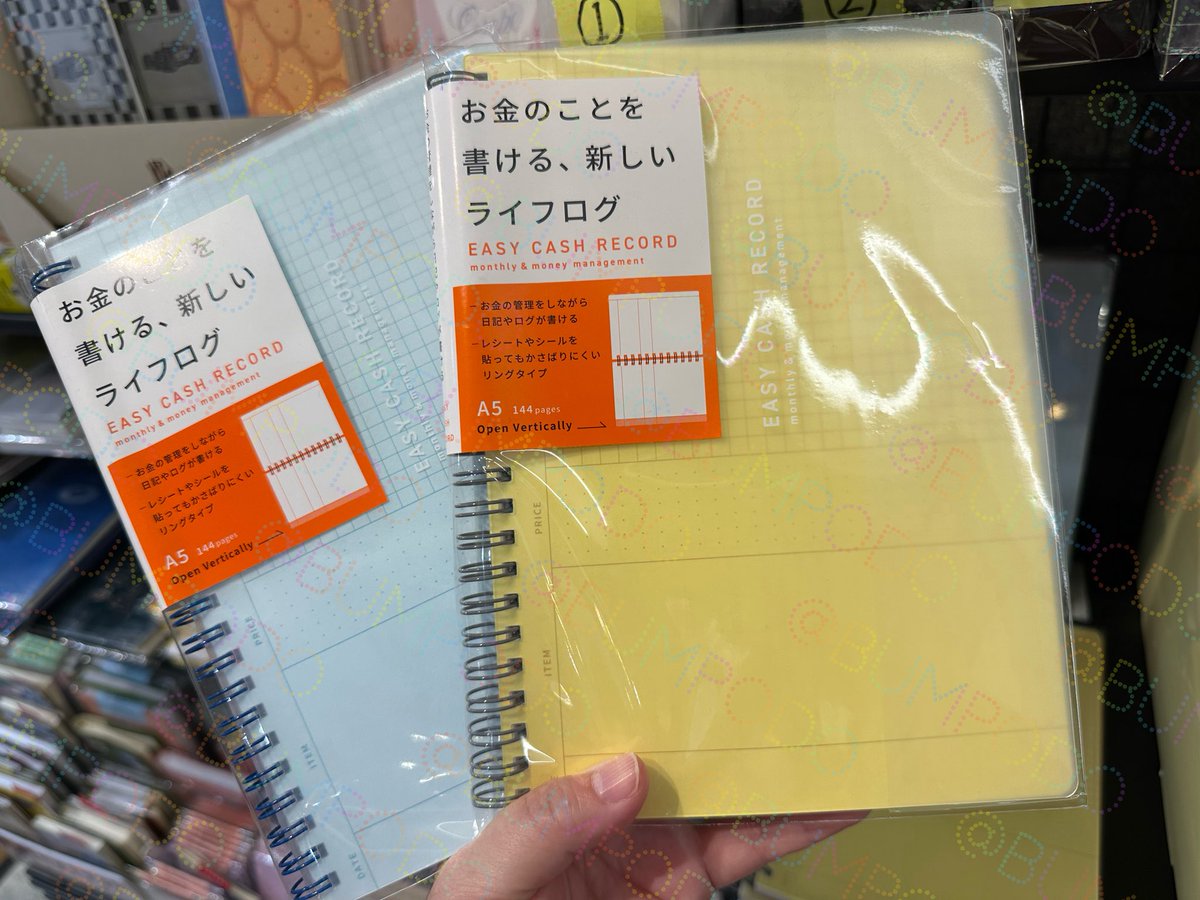 ①
②
お金のことを
書ける、新しい
ライフログ
EASY CASH RECORD
monthly & money management
—お金の管理をしながら
日記やログが書ける
—レシートやシールを
貼ってもかさばりにくい
リングタイプ
A5 144 pages
Open Vertically
EASY CASH RECORD
monthly & money management
PRICE
ITEM
お金のことを
書ける、新しい
ライフログ
EASY CASH RECORD
monthly & money management
—お金の管理をしながら
日記やログが書ける
—レシートやシールを
貼ってもかさばりにくい
リングタイプ
A5 144 pages
Open Vertically
EASY CASH RECORD
monthly & money management
PRICE
ITEM
DATE
@BUMPODO